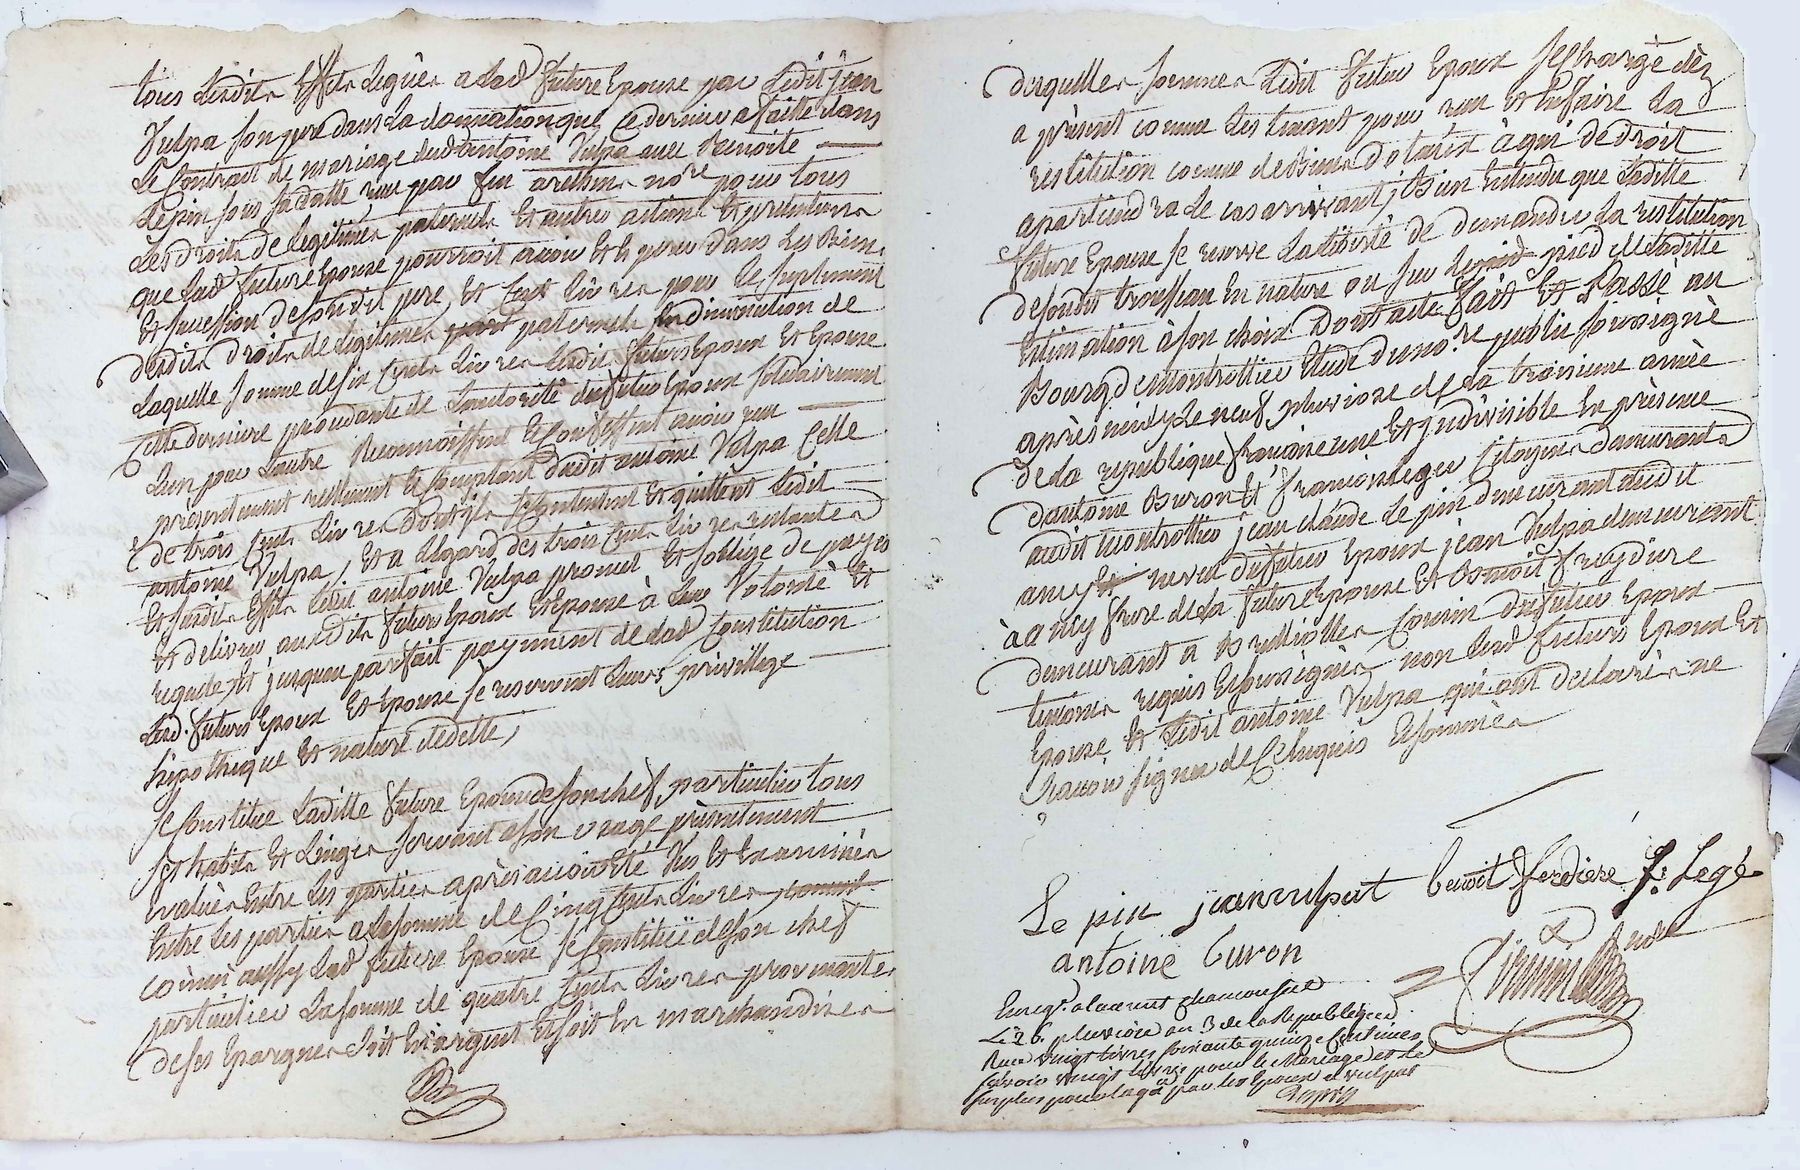 tous lesdits Effets legués a lad future Epouse par Ledit jean
Vulpa son pere dans La donnation que Ce dernier a faitte dans
Le Contrait de mariage dud antoine Vulpa avec benoite
Lepin sous sa datte reçu par feu no.re pour tous
Les Droits de legitimes paternels et autres actions et prétentions
que Lad future Epouse pourroit avoir et Esperer dans Les Biens
Et sucession desondit pere, et Cent livres pour le suplement
desdits droits de legitimes paternels diminution de
Laquelle somme de six Cents livres lesdits futurs Epoux et Epouse
Cette derniere procedante de Lautorité du futur Epoux solidairement
Lun pour Lautre Reconnoissent et Confessent avoir reçu
présentement réellement et Comptant dudit antoine Vulpa Celle
de trois Cents livres dont ils se Contentent et quittent Ledit
antoine Vulpa, Et a légard des trois Cents livres restantes
Et susdits Effets Ledit antoine Vulpa promet et soblige de payer
et delivrer auxdits futurs Epoux et Epouse à leur Volonté et
requete et jusquau parfait payement de lad Constitution
Lesd. futurs Epoux et Epouse se reservent leurs privillege
hipotheque Et nature de dette,
se Constitue Laditte future Epouse de son chef particulier tous
ses habits et Linges servant a son usage présentement
évalués Entre les parties après avoir été Vus et Examinés
Entre Les parties a la somme de Cinq Cents livres
comme aussy Lad future Epouse se Constitue de son chef
particulier La somme de quatre Cents livres provenantes
de ses Epargnes soit En argent Et soit En marchandises
desquelles sommes Ledit futur Epoux se charge dès
a présent comme Les tenant pour reçu et En faire La
restitution comme de Biens Dotaux à qui de droit
apartiendra le cas arrivant, Bien Entendu que Laditte
future Epouse se reserve La liberté de demander La restitution
de sondit trousseau En nature ou sur pied de Laditte
Estimation à son choix Dont acte Fait Et Passé au
Bourg de Montrottier Etude du no.re public soussigné
après midy Le neuf pluviose de La troisieme année
de La republique francoise une Et indivisible En présence
dantoine Buron Et francois leger Citoyens demeurants
audit Montrottier jean claude Le pin demeurant audit
ancy neveu du futur Epoux jean Vulpa demeurant
à ancy frere de La future Epouse Et Benoit
demeurant a Brullioles Cousin du futur Epoux
temoins requis Et soussignés non Lesd futurs Epoux Et
Epouse Et Ledit antoine Vulpa qui ont declarés ne
scavoir signer de Ce Enquis Et sommés
Le pin jean vulpat benoit ferdiere f. Legé
antoine buron
Enreg.é a laurent chamousset
Le 26 pluviose an 3 de la Republique
Reçu vingt livres soixante quinze Centimes
savoir vingt livres pour le Mariage et le
surplus pour